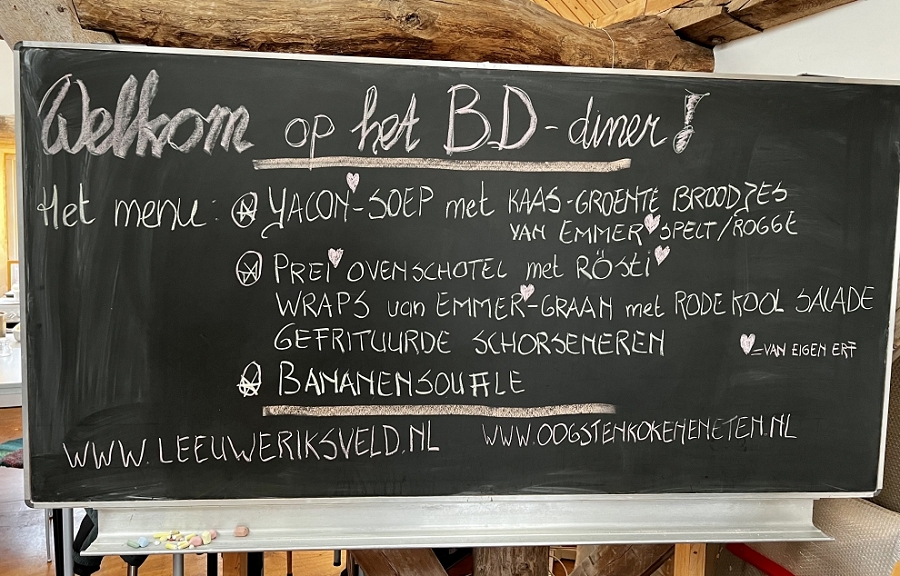 Welkom op het BD-diner!
Het menu: YACON-SOEP met KAAS-GROENTE BROODJES
VAN EMMER SPELT/ROGGE
PREI OVENSCHOTEL met RÖSTI
WRAPS van EMMER-GRAAN met RODE KOOL SALADE
GEFRITUURDE SCHORSENEREN
=VAN EIGEN ERF
BANANENSOUFFLE
WWW.LEEUWERIKSVELD.NL WWW.OOGSTENKOKENENETEN.NL